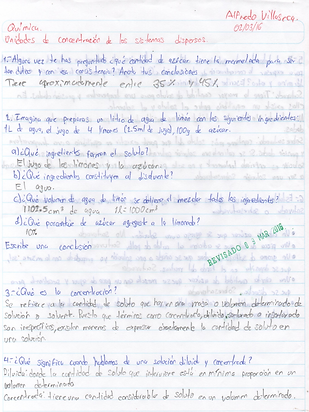 Alfredo Villaseca.
02/03/16
Química.
Unidades de concentración de los sistemas dispersos.
1.-Alguna vez te has preguntado ¿qué cantidad de azúcar tiene la mermelada para ser
tan dulce y con esa consistencia? Anota tus conclusiones
Tiene aproximadamente entre 35% y 45%
2. Imagina que preparas un litro de agua de limón con los siguiente ingredientes:
1L de agua, el jugo de 4 limones (2.5ml de jugo), 100g de azúcar.
a) ¿Qué ingredientes forman el soluto?
El jugo de los limones y la azúcar.
b) ¿Qué ingredientes constituyen al disolvente?
El agua.
c) ¿Qué volumen de agua de limón se obtiene al mezclar todos los ingredientes?
cm³ de agua. 1L = 1000cm³
d) ¿Qué porcentaje de azúcar agregaste a la limonada?
10%
Escribe una conclusión
REVISADO MAR 2016
3.-¿Qué es la concentración?
Se refiere a la cantidad de soluto que hay en una masa o volumen determinado de
solución o solvente. Puesto que términos como concentrado, diluido, saturado o insaturado
son inespecíficos, existen maneras de expresar exactamente la cantidad de soluto en
una solución.
4.-¿Qué significa cuando hablamos de una solución diluida y concentrada?
Diluida: donde la cantidad de soluto que interviene está en mínima proporción en un
volumen determinado
Concentrada: tiene una cantidad considerable de soluto en un volumen determinado.